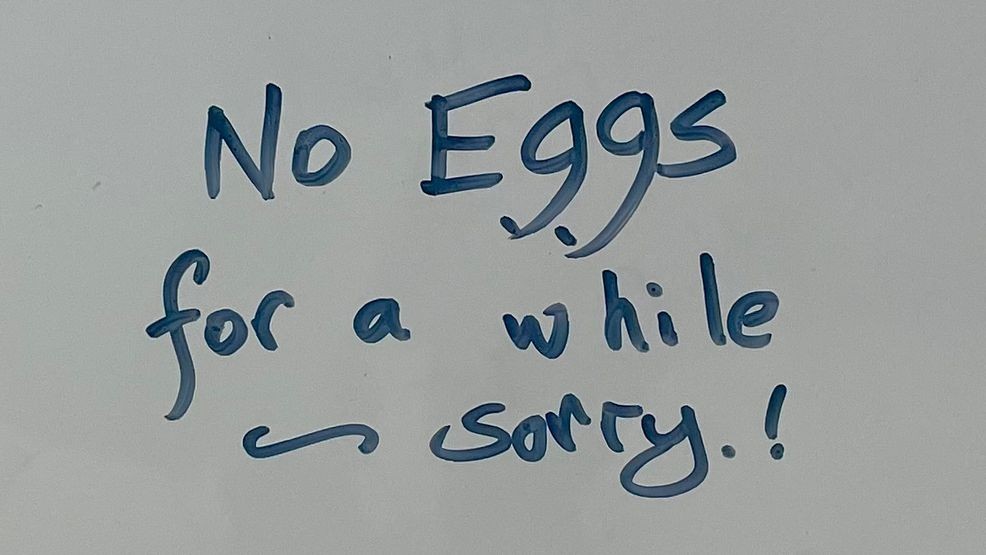 No Eggs
for a while
~ sorry.!